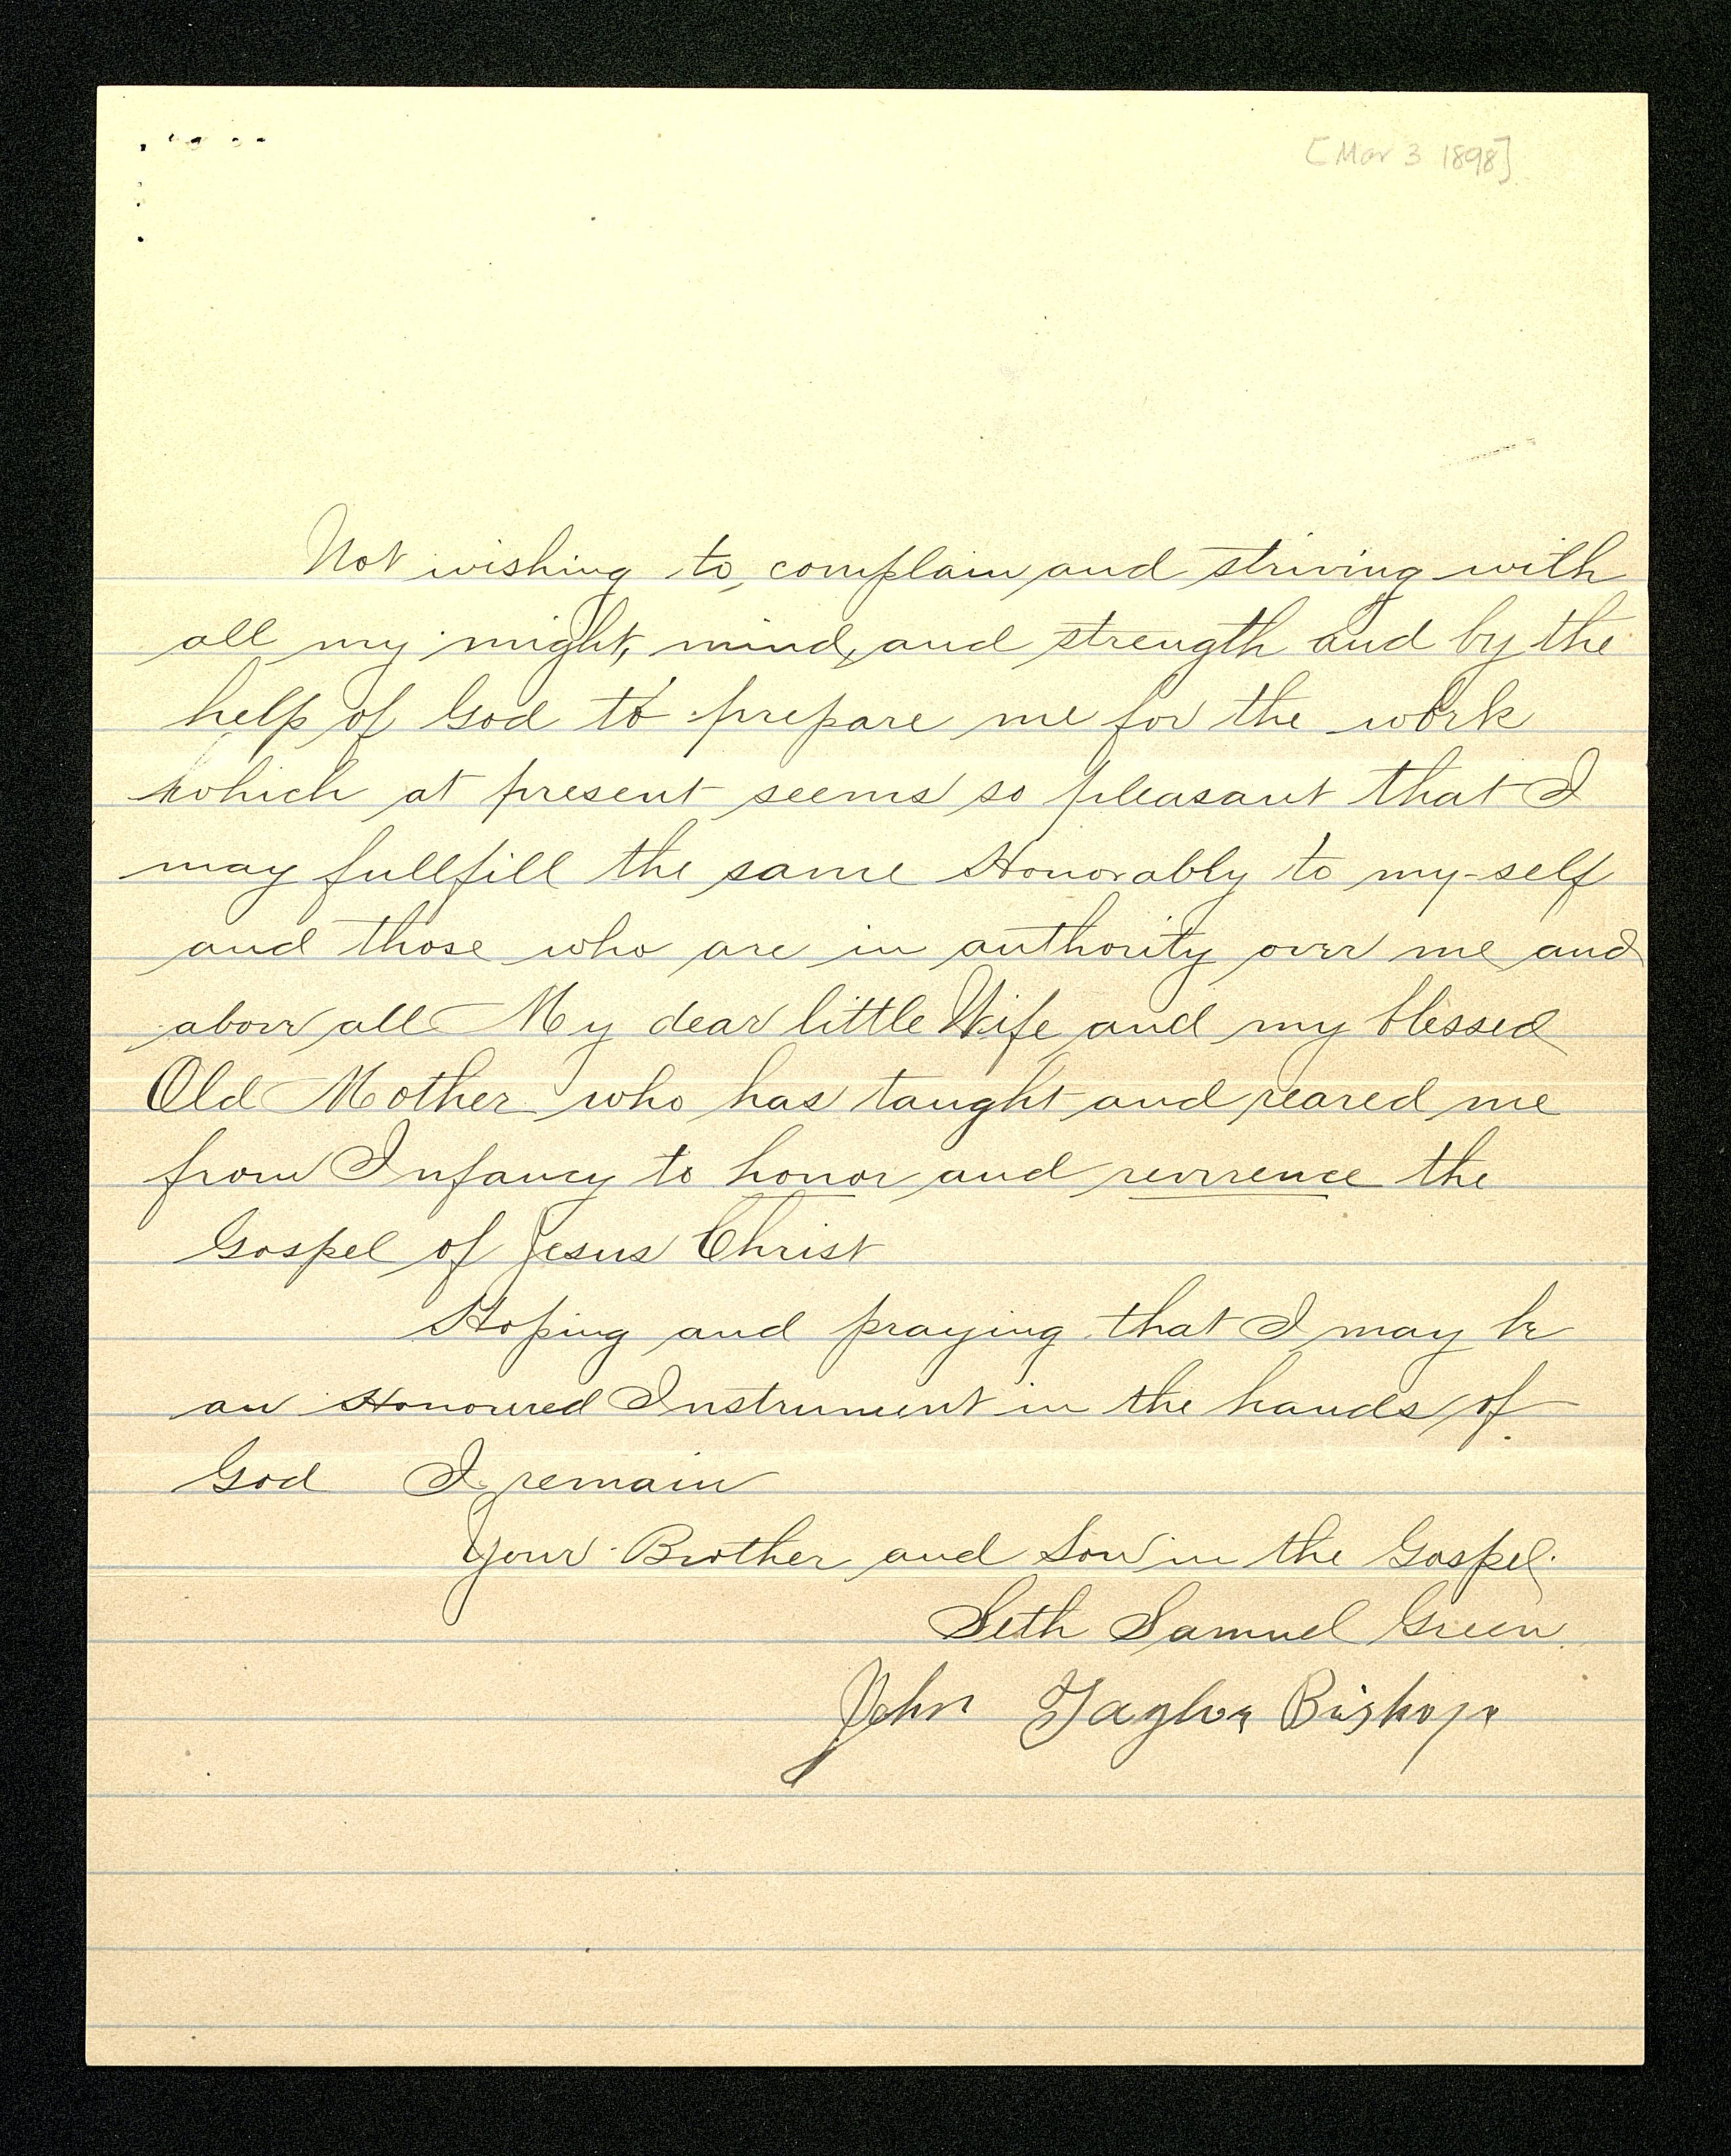 [Mar 3 1898]
Not wishing to complain and striving with
all my might, mind, and strength and by the
help of God to prepare me for the work
which at present seems so pleasant that I
may fullfill the same Honorably to my-self
and those who are in authority over me and
above all My dear little Wife and my blessed
Old Mother who has taught and reared me
from Infancy to honor and reverence the
Gospel of Jesus Christ
Hoping and praying that I may be
an Honoured Instrument in the hands of
God I remain
Your Brother and Son in the Gospel.
Seth Samuel Green.
John Taylor Bishop